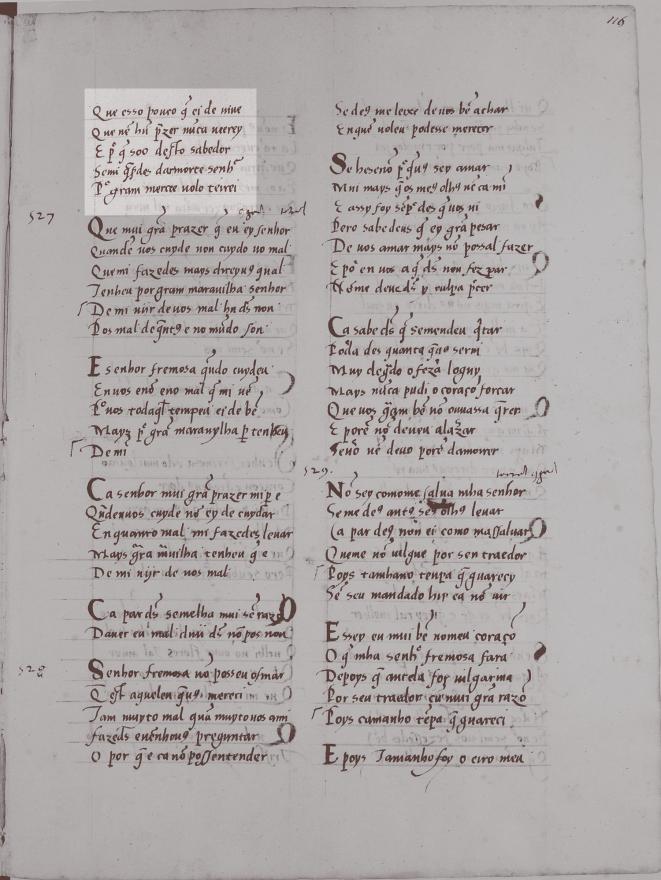 116
Que esso pouco q̃ ei de uiue
Que nẽ hũ p̃zer nũca ueerey
E p̃ q̃ soo desto sabedor
Semi q̃sdes dar morte senh̃
P̃ gram mercee uolo terrei
527
Que mui grã prazer q̃ eu ey senhor
Quando uos cuyde non cuydo no mal
Quemi fazedes mays direyu9 qual
Tenheu por gram marauilha senhor
De mi uijr de uos mal hu d̃s non
Pos mal de no mũdo son
E senhor fremosa q̃ndo cuydeu
En uos enõ eno mal q̃ mi uẽ
P̃ uos todaq̃l tempeu ei de bẽ
Mays p̃ grã marauylha p̃ tenheu
De mi
Ca senhor mui grã prazer mi p̃ e
Qñdeuuos cuyde nõ ey de cuydar
En quanto mal mi fazedes leuar
Mays grã m̃uilha tenheu q̃ e
De mi uijr de uos mal
Ca par d̃s semelha mui sẽ razõ
Dauer eu mal du d̃s nõ pos non
528
Senhor fremosa no posseu osmar
Q̃ est aquelen q̃u9 mereci
Tam muyto mal quã muyto uos ami
fazed̃s euẽnhou9 preguntar
O por q̃ e ca nõ possentender
Se de9 me leixe de uos bẽ achar
En que uoleu podesse merecer
Se he senõ p̃ q̃u9 sey amar
Mui mays q̃os me9 olh9 nẽ ca mi
E assy foy sẽp̃ des q̃uos ui
Pero sabe deus q̃ ey grã pesar
De uos amar mays nõ possal fazer
E põ en uos a q̃ d̃s non fez par
Nõ me deu9 d̃s y culpa põer
Ca sabe d̃s q̃ semendeu q̃tar
Poda des quanta q̃ uo serui
Muy de g̃do o fezã loguy
Mays nũca pudi o coraçõ forçar
Que uos g̃m bẽ nõ ouuessa q̃rer
E porẽ nõ deueu a lazar
Senõ nẽ deuo porẽ damorrer
529.
Nõ sey comome salua mha senhor
Se me de9 ant9 se9 olh9 leuar
Ca par de9 non ei como massaluar
Queme nõ iulgue por seu traedor
Poys tamhano tenpa q̃ guarecy
Sẽ seu mandado hir ca nõ uir
E sey eu mui bẽ no meu coraçõ
O q̃ mha senh̃ fremosa fara
Depoys q̃ antela for iulgarma
Por seu traedor cũ mui grã razõ
Poys tamanho tẽpa q̃ guareci
E poys Tamanho foy o erro meu